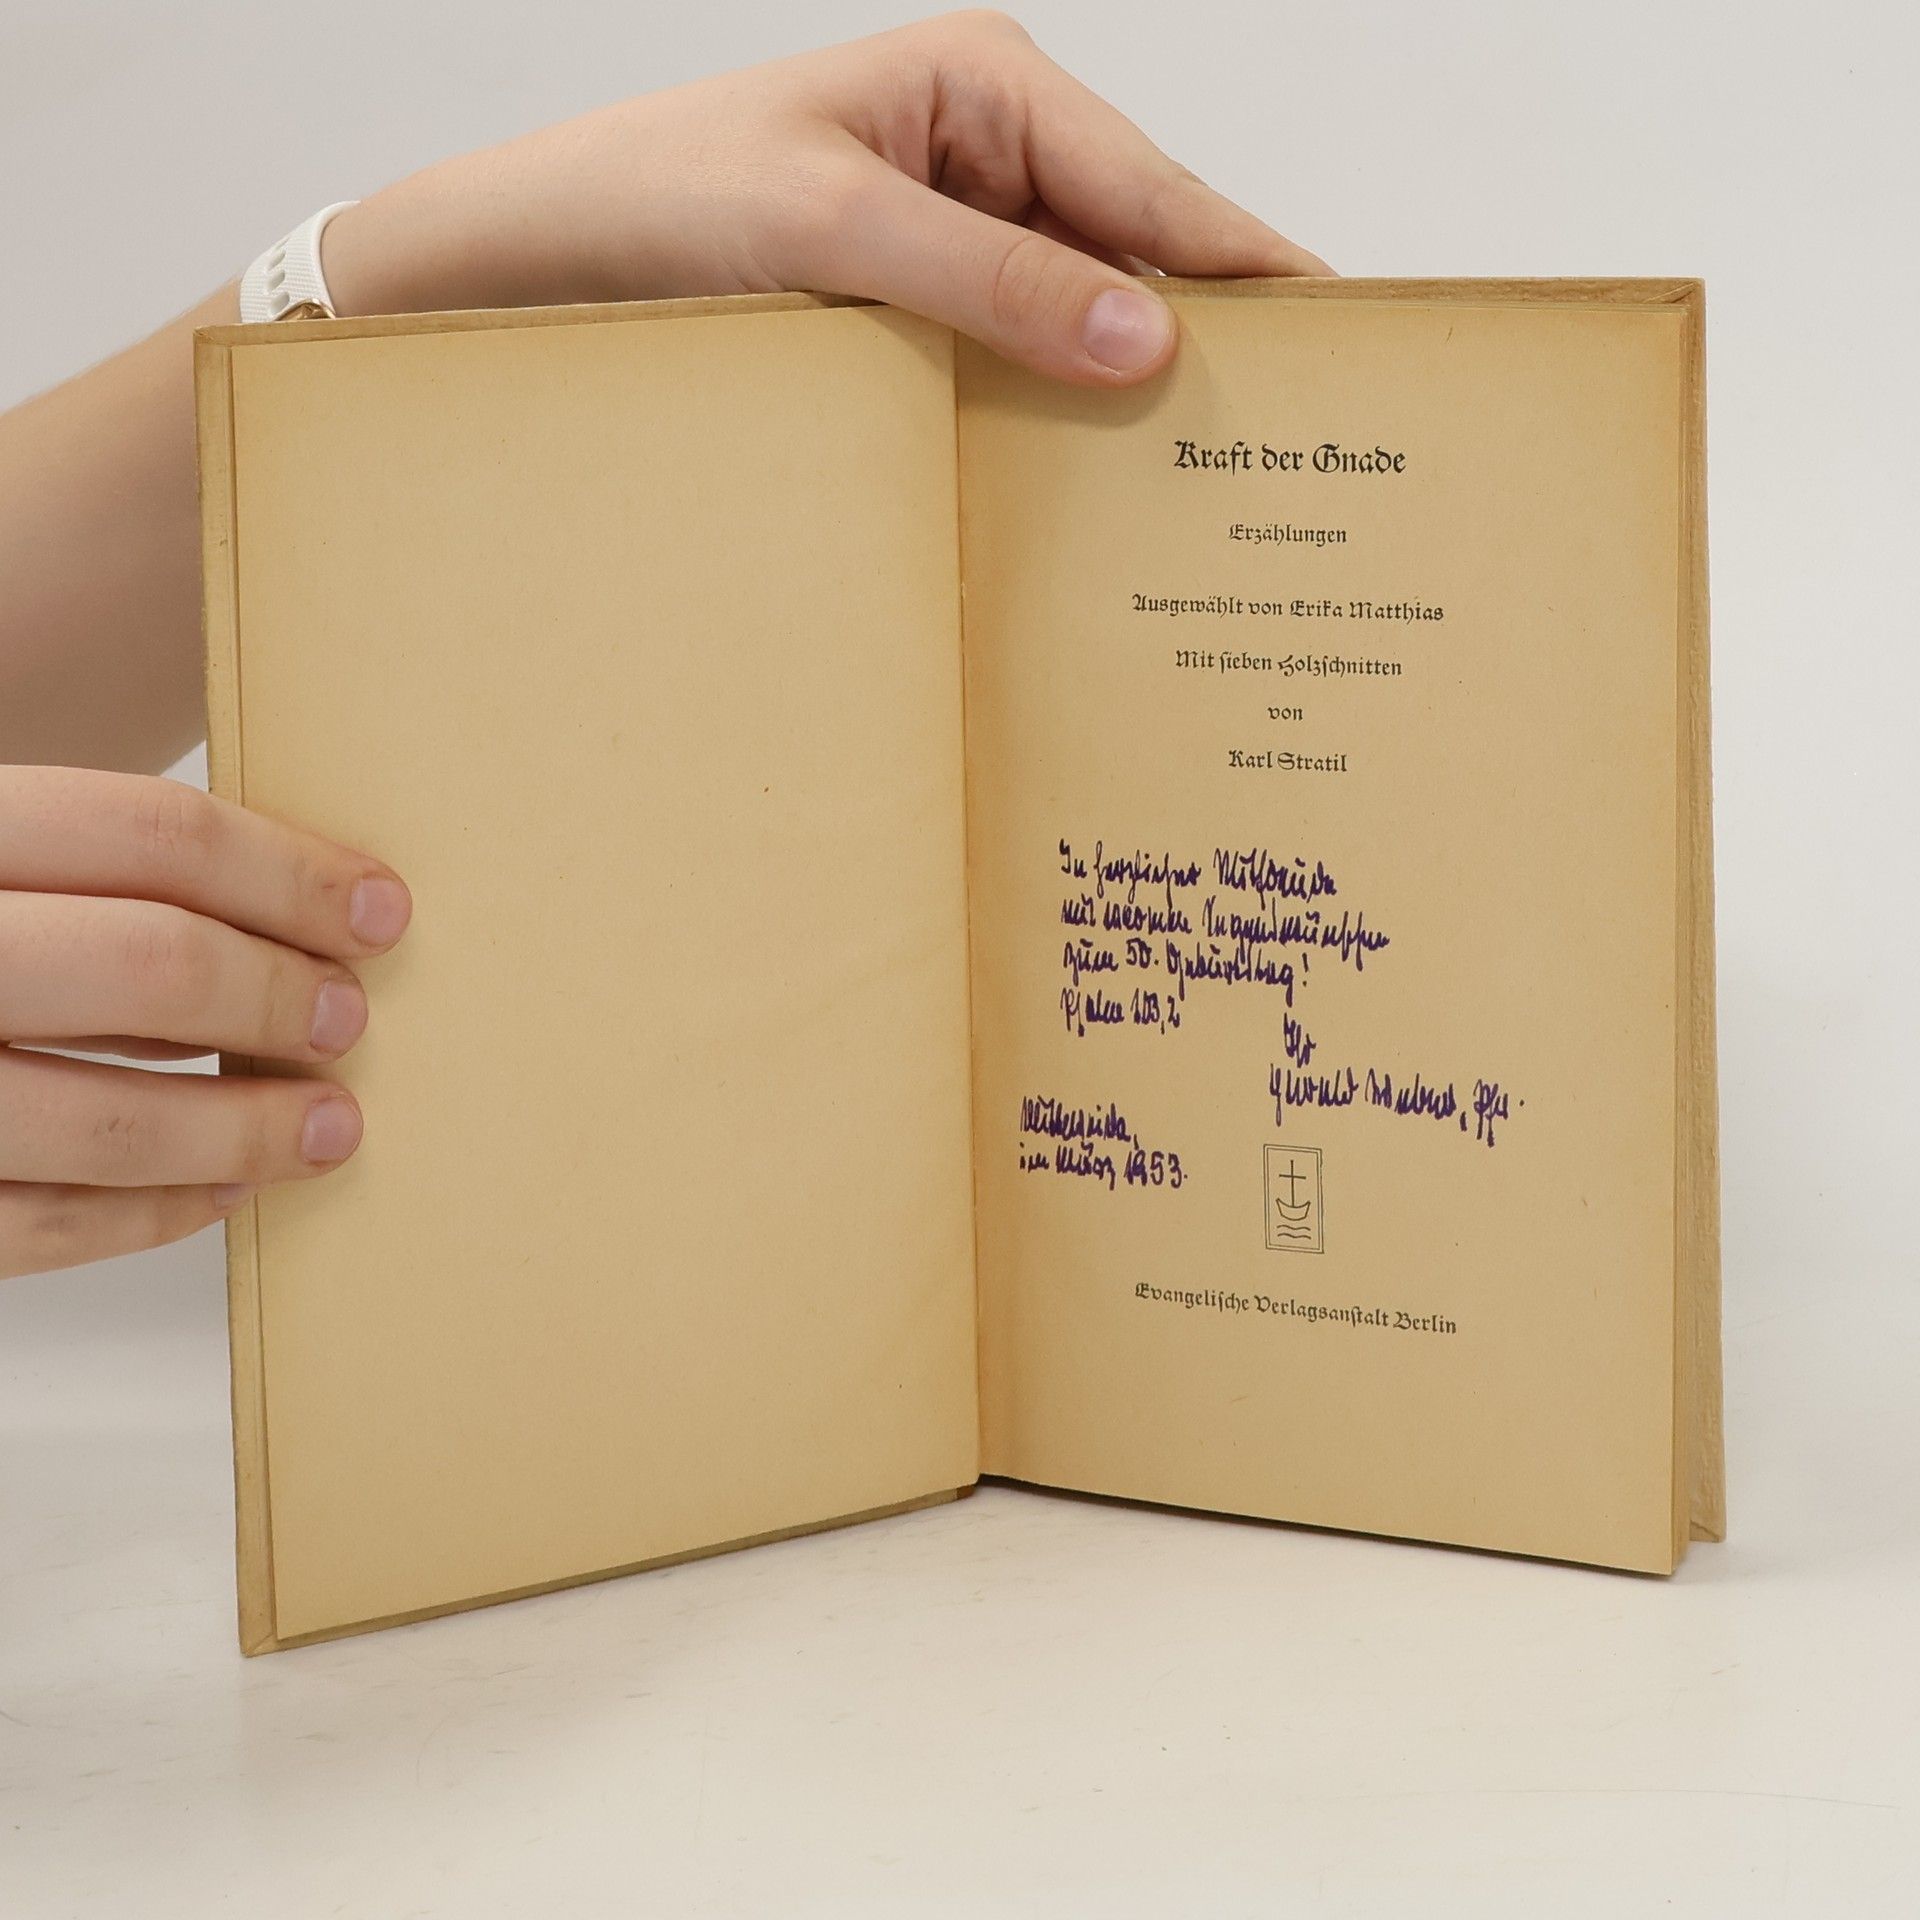 Kraft der Gnade
Erzählungen
Ausgewählt von Erika Matthias
Mit sieben Holzschnitten
von
Karl Stratil
In herzlicher Mitfreude
mit warmen Segenswünschen
zum 50. Geburtstag!
Psalm 103,2
Ihr
Pfr.
im März 1953.
Evangelische Verlagsanstalt Berlin